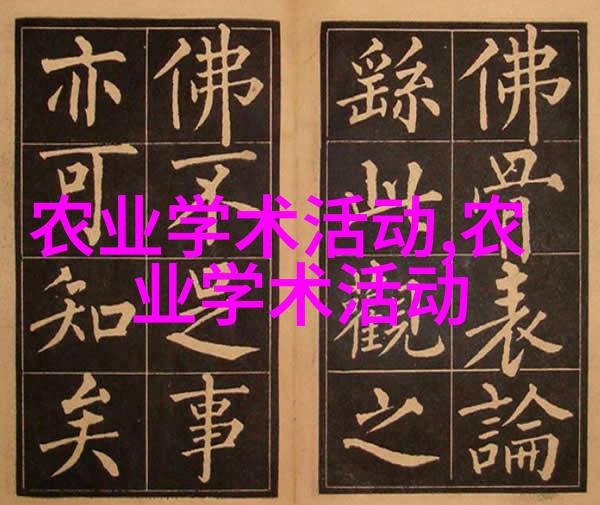 农业学术活动,农
业学术活动
佛骨表論
繇此觀之
佛不足事
亦可知矣